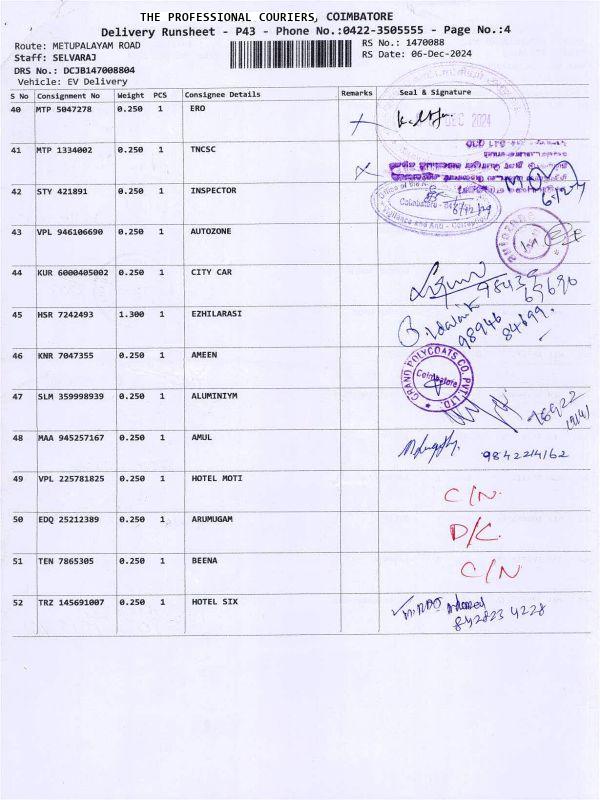 THE PROFESSIONAL COURIERS, COIMBATORE
Delivery Runsheet - P43 - Phone No.:0422-3505555 - Page No.:4
Route: METUPALAYAM ROAD
RS No.: 1470088
Staff: SELVARAJ
RS Date: 06-Dec-2024
DRS No.: DCJB147008804
Vehicle: EV Delivery
S No Consignment No Weight PCS Consignee Details Remarks Seal & Signature
40 MTP 5047278 0.250 1 ERO
DEC 2024
41 MTP 1334002 0.250 1 TNCSC
42 STY 421891 0.250 1 INSPECTOR
43 VPL 946106690 0.250 1 AUTOZONE
44 KUR 6000405002 0.250 1 CITY CAR
45 HSR 7242493 1.300 1 EZHILARASI
98946
84699
46 KNR 7047355 0.250 1 AMEEN
GRAND POLYCOATS CO. PVT. LTD.
Coimbatore
47 SLM 359998939 0.250 1 ALUMINIYM
48 MAA 945257167 0.250 1 AMUL
9842214162
49 VPL 225781825 0.250 1 HOTEL MOTI
C/N
50 EDQ 25212389 0.250 1 ARUMUGAM
D/C
51 TEN 7865305 0.250 1 BEENA
C/N
52 TRZ 145691007 0.250 1 HOTEL SIX
842823 4228